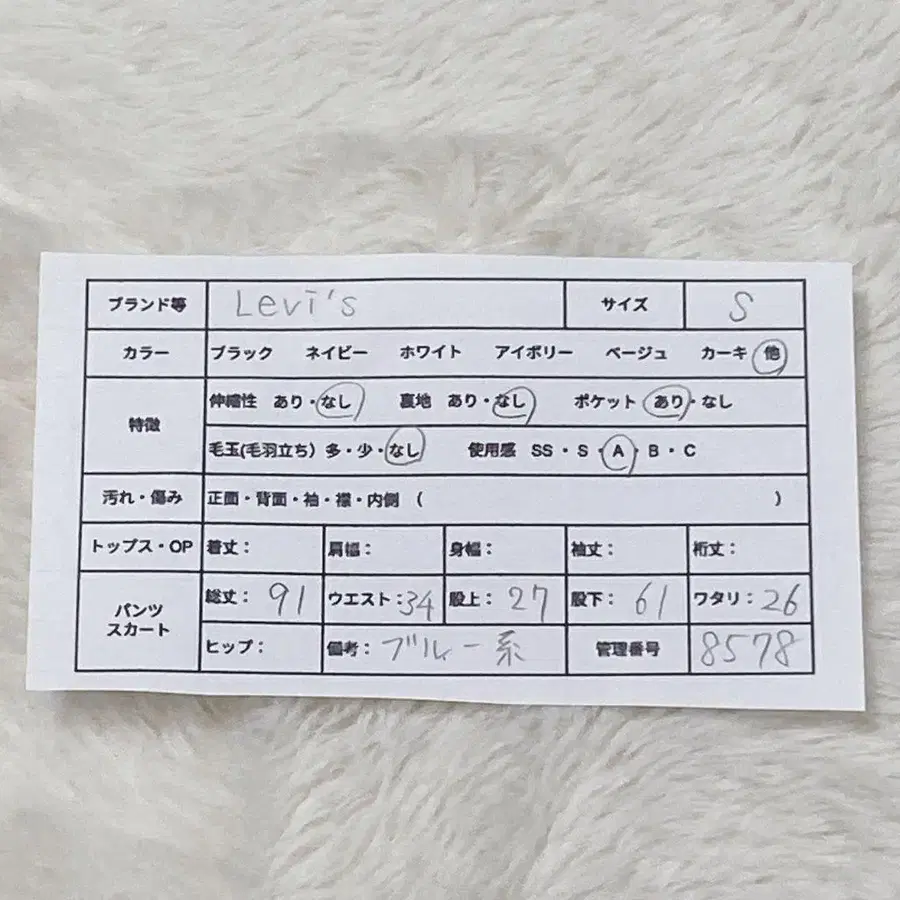 ブランド等 Levi's サイズ S
カラー ブラック ネイビー ホワイト アイボリー ベージュ カーキ 他
特徴 伸縮性 あり・なし 裏地 あり・なし ポケット あり・なし
毛玉(毛羽立ち) 多・少・なし 使用感 SS・S・A・B・C
汚れ・傷み 正面・背面・袖・襟・内側 ( )
トップス・OP 着丈: 肩幅: 身幅: 袖丈: 裄丈:
パンツ スカート 総丈: 91 ウエスト:34 股上: 27 股下: 61 ワタリ:26
ヒップ: 備考: ブルー系 管理番号 8578